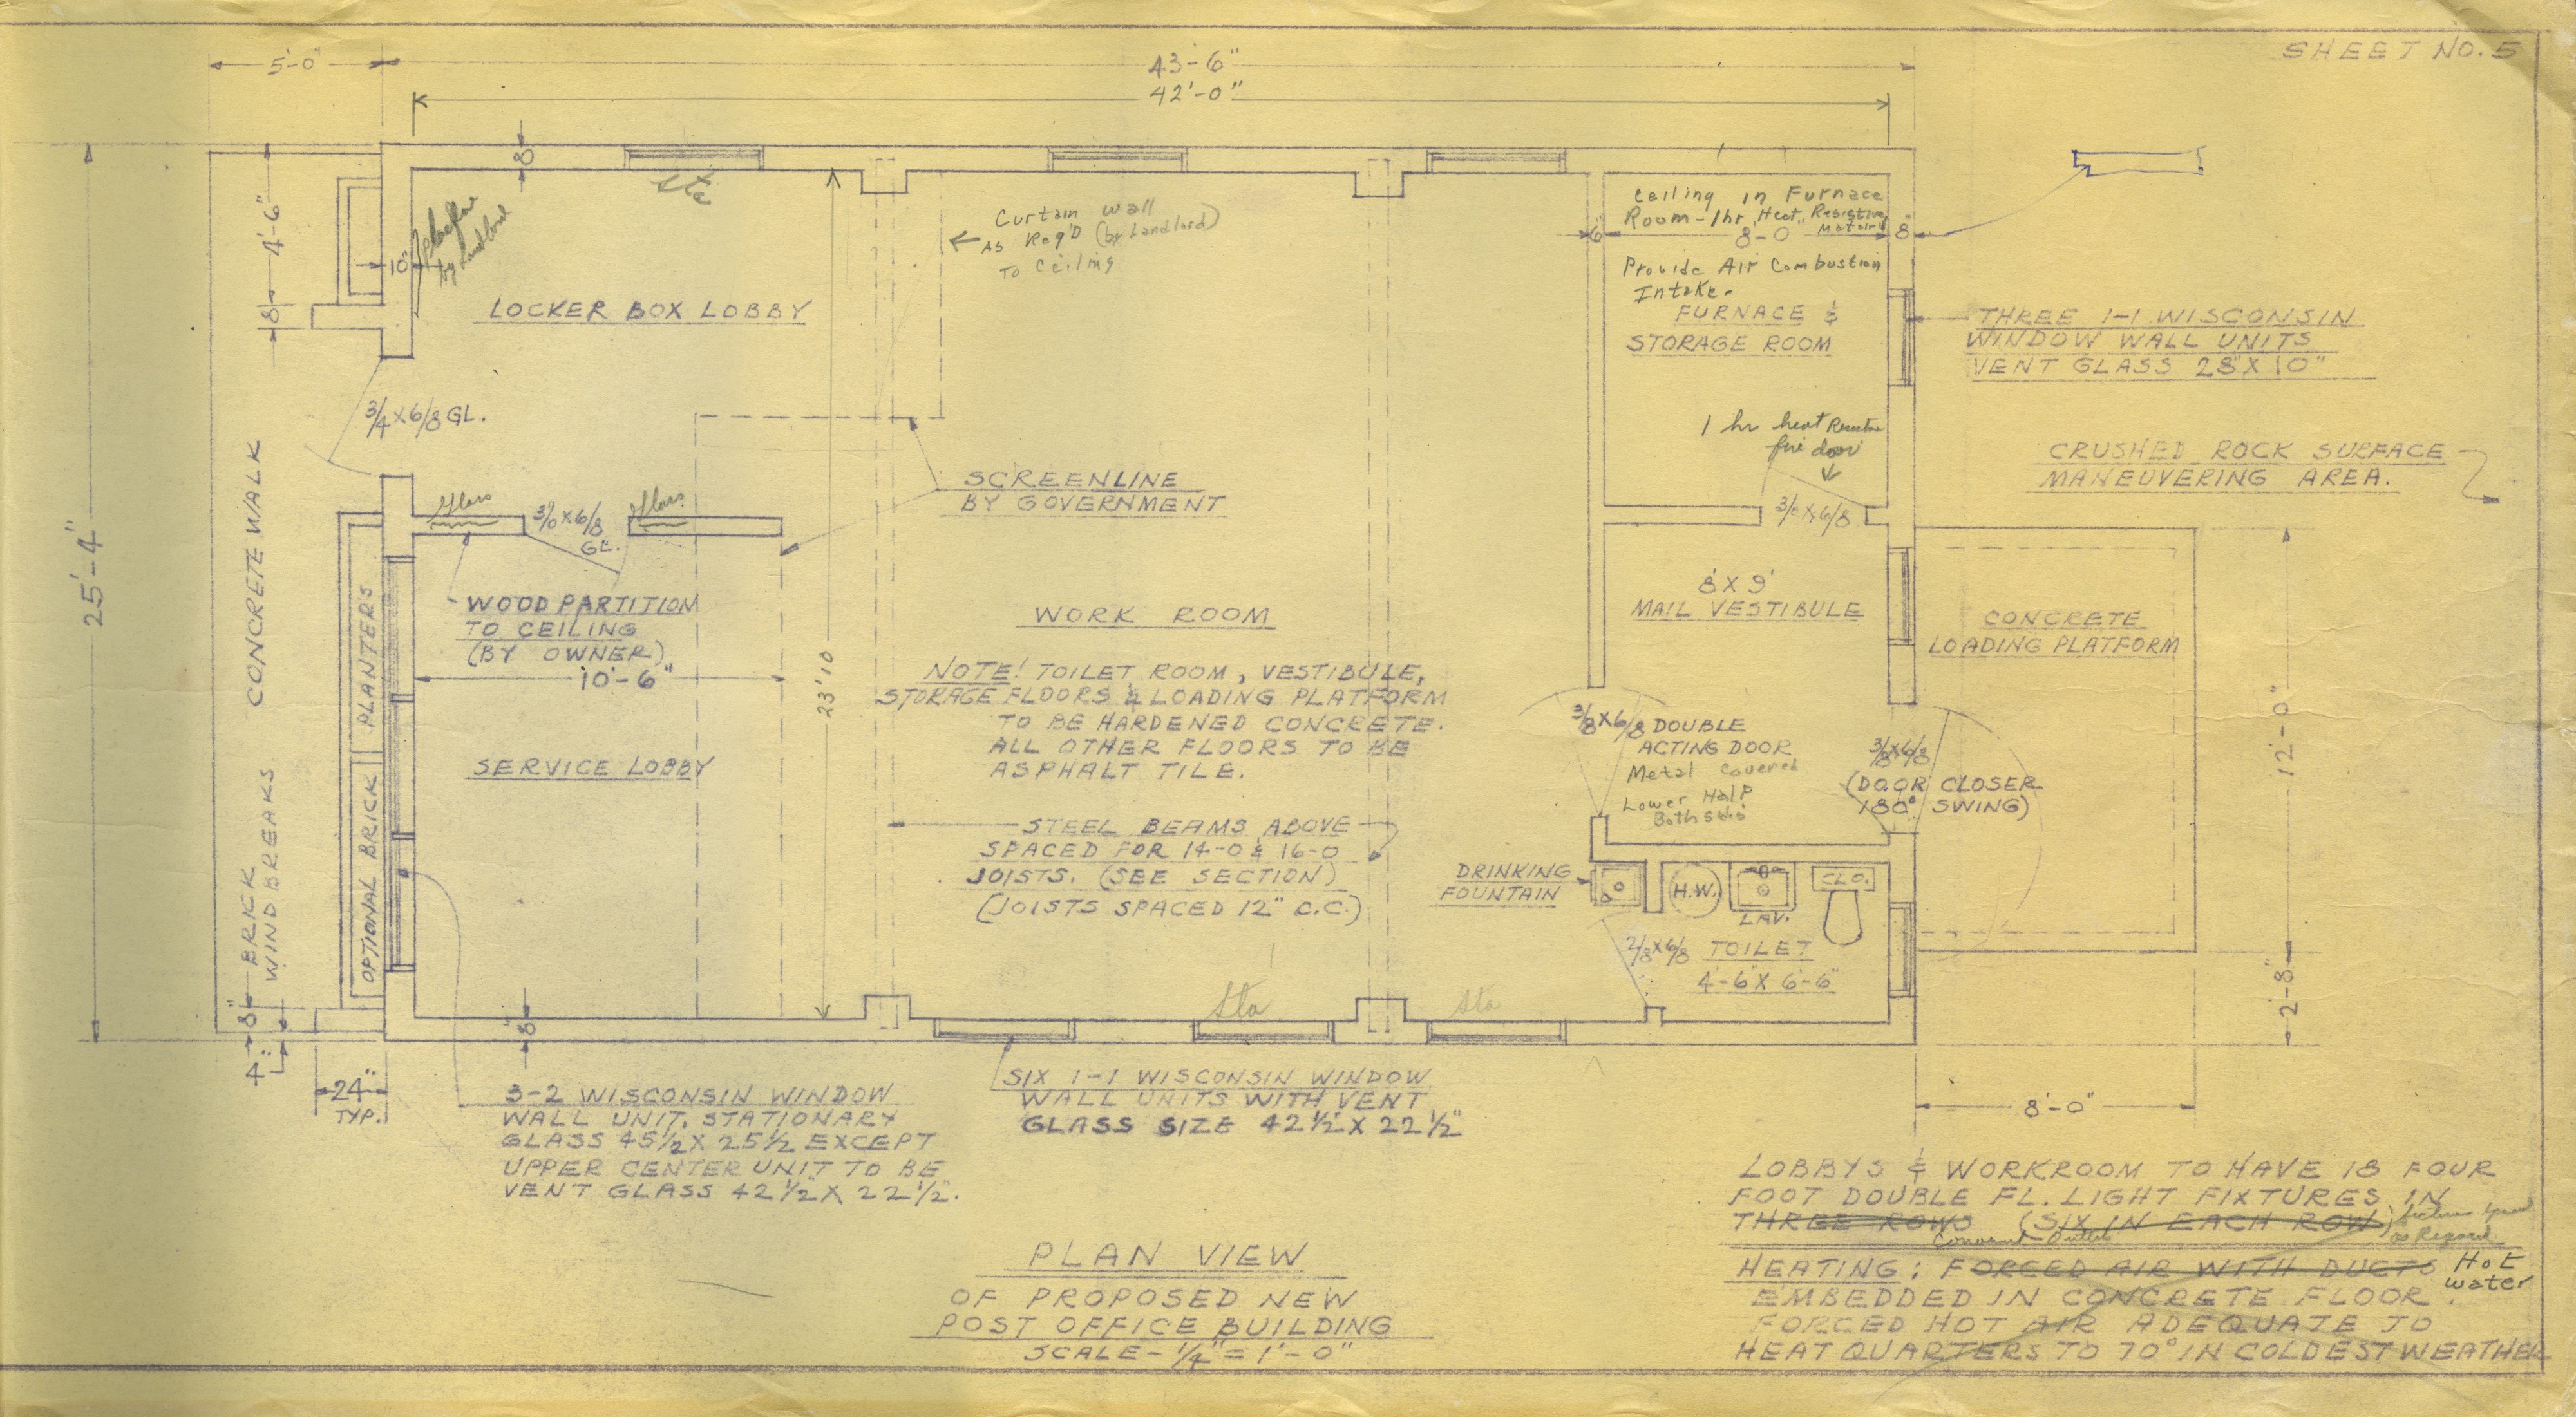 SHEET NO. 5
5'-0"
43'-6"
42'-0"
8"
Sta
4'-6"
10"
by Landlord
8"
LOCKER BOX LOBBY
Curtain wall
As Req'D (by Landlord)
To Ceiling
Ceiling in Furnace
Room - 1hr. Heat Resistive
Material
6"
8'-0"
8"
Provide Air Combustion
Intake.
FURNACE &
STORAGE ROOM
THREE 1-1 WISCONSIN
WINDOW WALL UNITS
VENT GLASS 28" X 10"
3/4 X 6/8 GL.
1 hr heat
fire door
3/0 X 6/8
CRUSHED ROCK SURFACE
MANEUVERING AREA.
SCREENLINE
BY GOVERNMENT
Glass
3/0 X 6/8
GL.
Glass
CONCRETE WALK
25'-4"
WOOD PARTITION
TO CEILING
(BY OWNER)
10'-6"
23'10
PLANTERS
OPTIONAL BRICK
WORK ROOM
8' X 9'
MAIL VESTIBULE
CONCRETE
LOADING PLATFORM
NOTE! TOILET ROOM, VESTIBULE,
STORAGE FLOORS & LOADING PLATFORM
TO BE HARDENED CONCRETE.
ALL OTHER FLOORS TO BE
ASPHALT TILE.
SERVICE LOBBY
3/8 X 6/8 DOUBLE
ACTING DOOR
Metal Covered
Lower Half
Both Sides
3/8 X 6/8
(DOOR CLOSER
180° SWING)
12'-0"
STEEL BEAMS ABOVE
SPACED FOR 14-0 & 16-0
JOISTS. (SEE SECTION)
(JOISTS SPACED 12" C.C.)
DRINKING
FOUNTAIN
H.W.
LAV.
CLO.
2/8 X 6/8 TOILET
4'-6 X 6'-6"
BRICK
WIND BREAKS
8"
4"
24"
TYP.
8"
Sta
Sta
2'-8"
8'-0"
3-2 WISCONSIN WINDOW
WALL UNIT, STATIONARY
GLASS 45½ X 25½ EXCEPT
UPPER CENTER UNIT TO BE
VENT GLASS 42½" X 22½".
SIX 1-1 WISCONSIN WINDOW
WALL UNITS WITH VENT
GLASS SIZE 42½" X 22½"
PLAN VIEW
OF PROPOSED NEW
POST OFFICE BUILDING
SCALE - ¼" = 1'-0"
LOBBYS & WORKROOM TO HAVE 18 FOUR
FOOT DOUBLE FL. LIGHT FIXTURES IN
THREE ROWS (SIX IN EACH ROW)
HEATING: FORCED AIR WITH DUCTS Hot
water
EMBEDDED IN CONCRETE FLOOR.
FORCED HOT AIR ADEQUATE TO
HEAT QUARTERS TO 70° IN COLDEST WEATHER